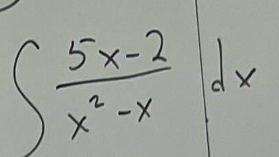 ∫ (5x-2)/(x²-x) dx